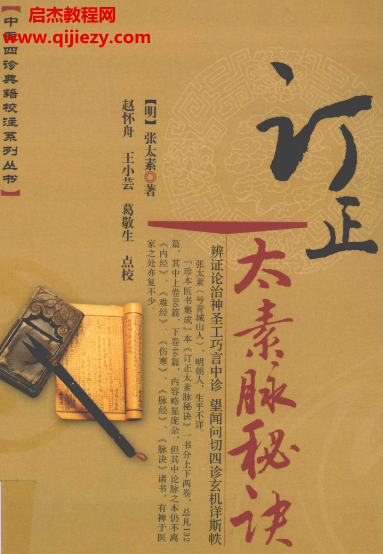 启杰教程网
www.qijiezy.com
订正
太素脉秘诀
辨证论治神圣工巧言中诊 望闻问切四诊玄机详斯帙
张太素（号青城山人），明朝人，生平不详。
「珍本医书集成」本《订正太素脉秘诀》一书分上下两卷，总凡132
篇，其中上卷86篇，下卷46篇，内容略显庞杂，但其中论脉之本仍不离
《内经》、《难经》、《伤寒》、《脉经》、《脉诀》诸书，有裨于医
家之处亦复不少。
【明】张太素◎著
赵怀舟 王小芸 葛敬生 点校
【中医四诊典籍校注系列丛书】